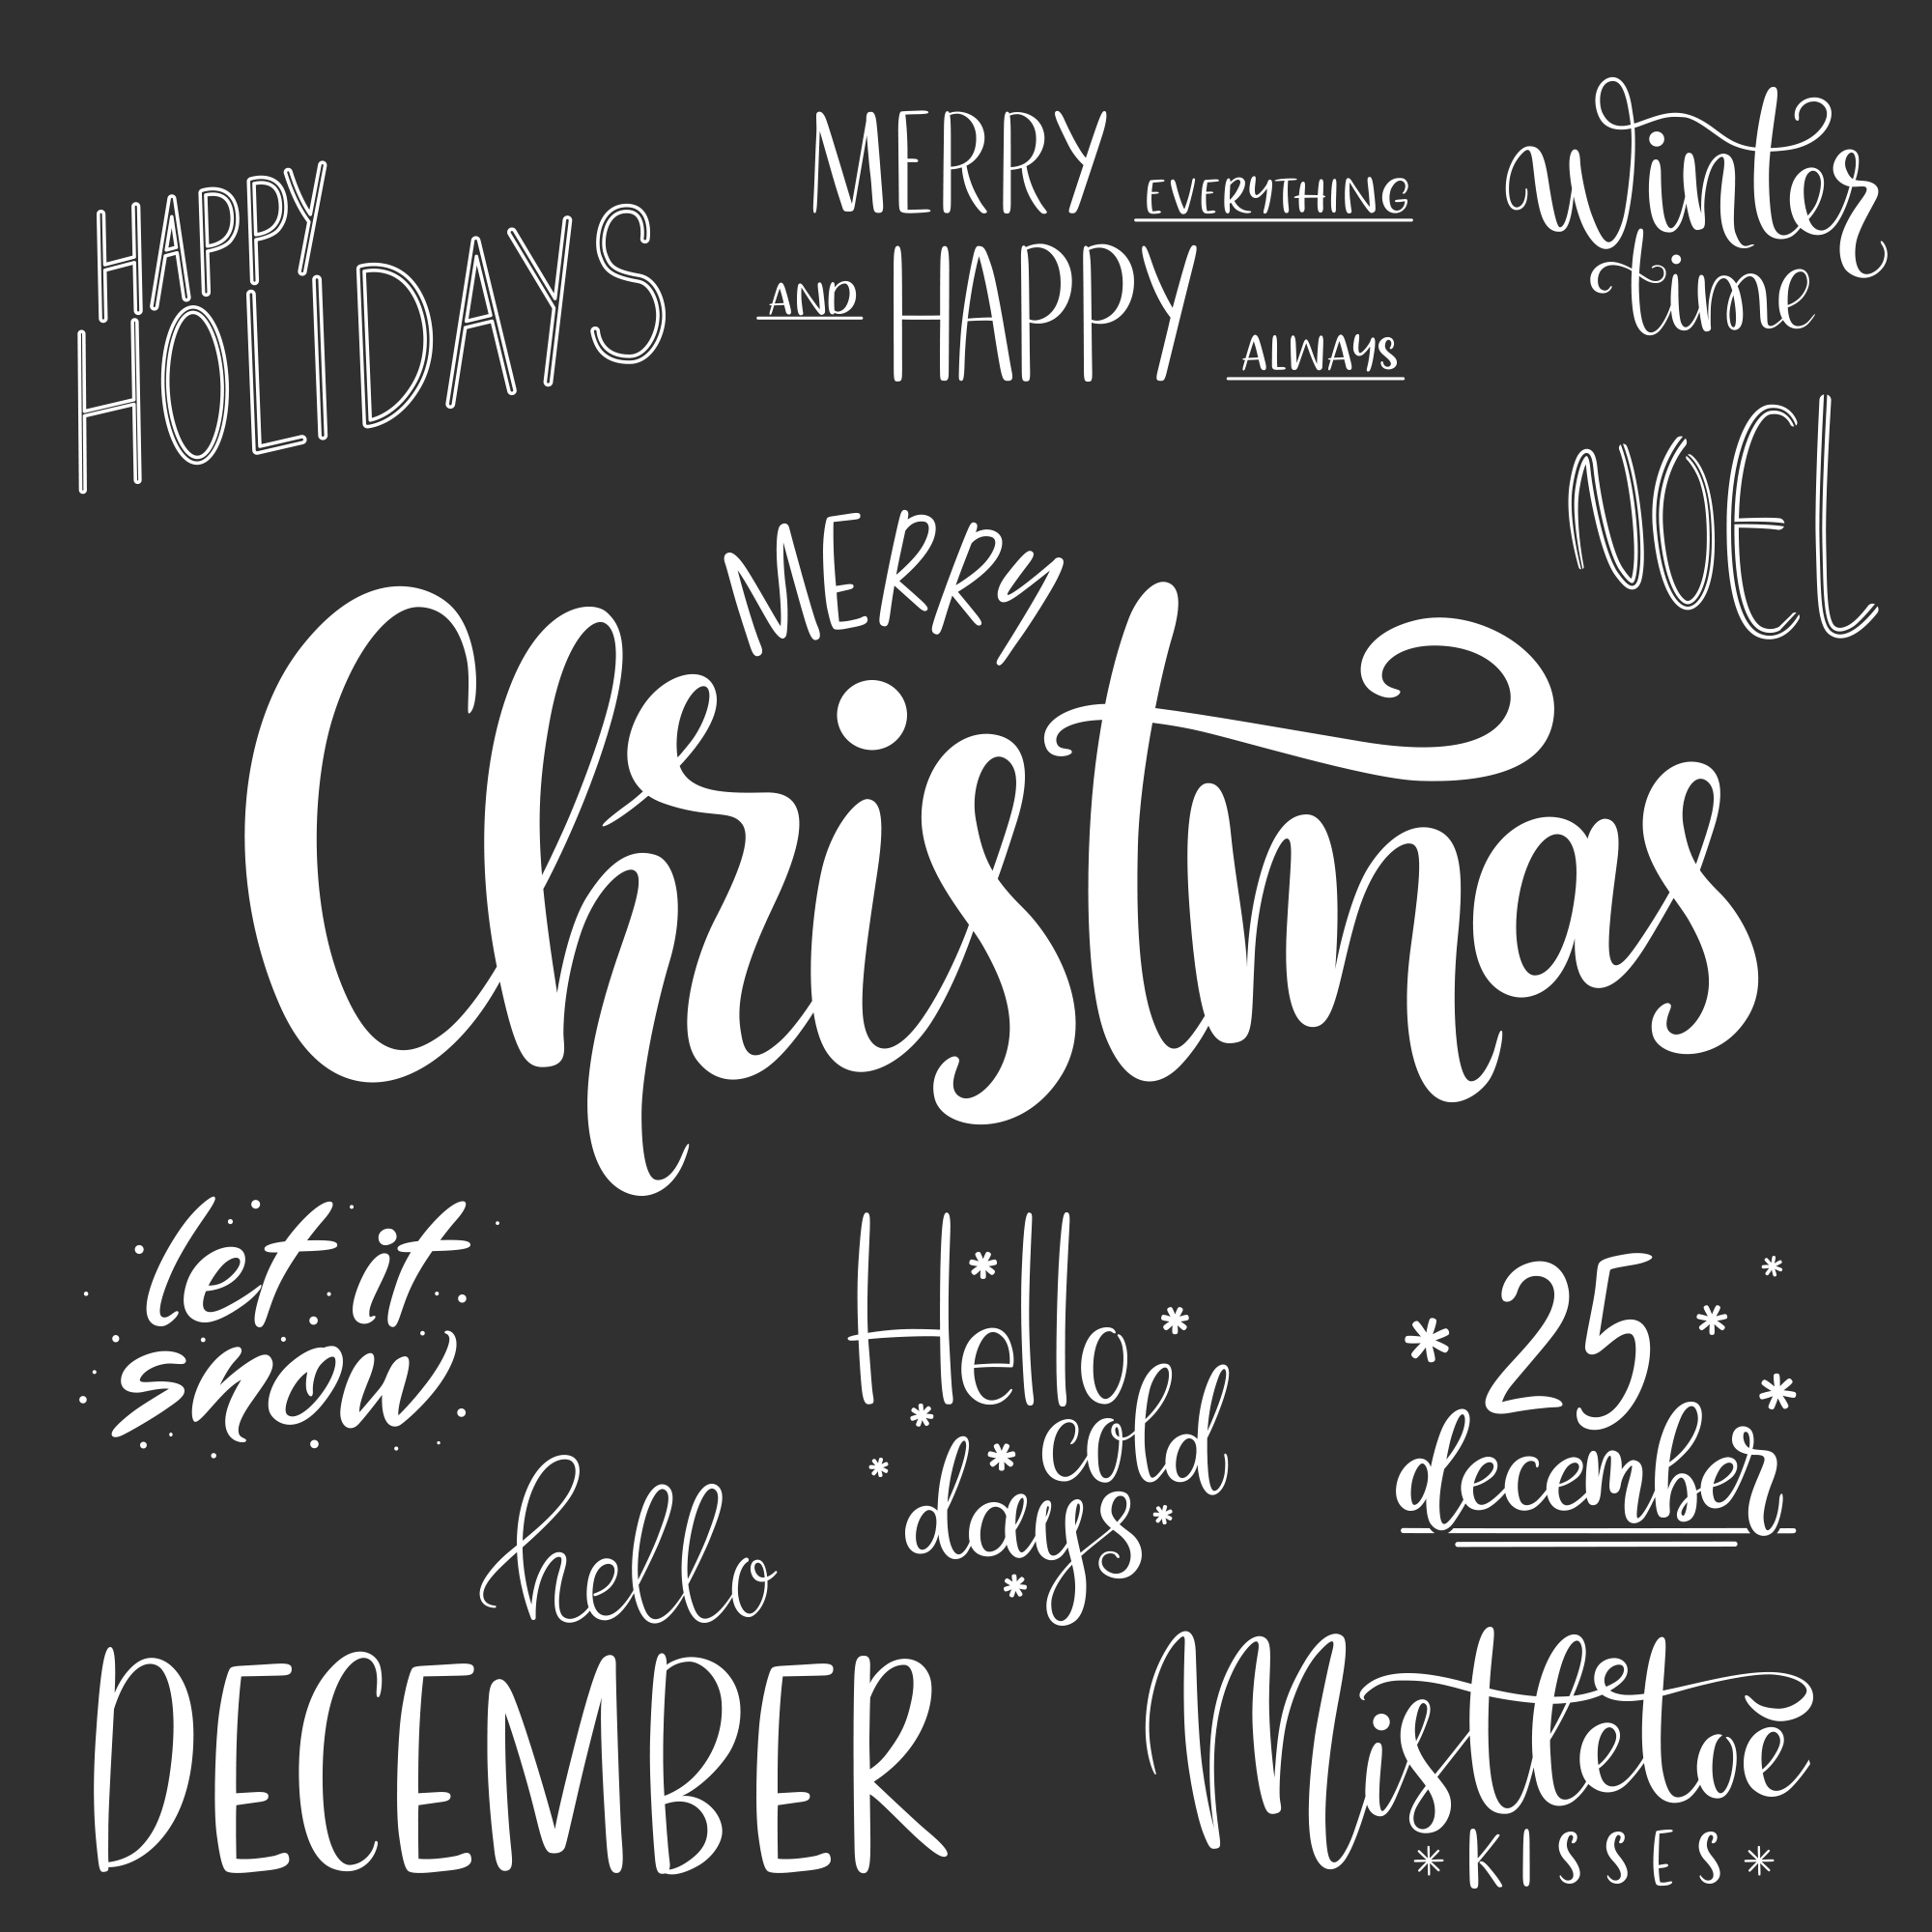 HAPPY
HOLIDAYS
MERRY EVERYTHING
AND HAPPY ALWAYS
Winter
time
NOEL
MERRY
Christmas
let it
snow
Hello
cold
days
25
december
hello
DECEMBER
Mistletoe
KISSES